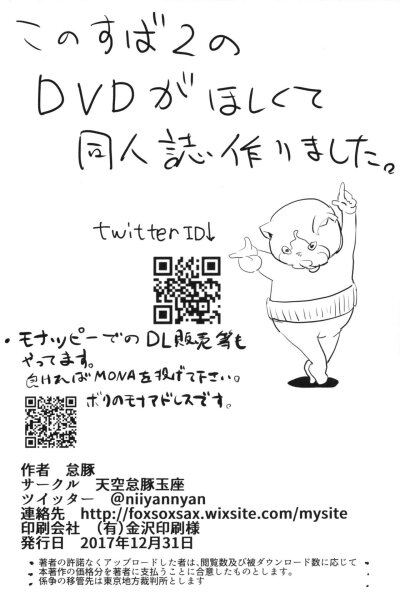 このすば2の
DVDがほしくて
同人誌作りました。
twitterID↓
・モナッピーでのDL販売等も
やってます。
良ければMONAを投げて下さい。
ボクのモナアドレスです。
作者 怠豚
サークル 天空怠豚玉座
ツイッター @niiyannyan
連絡先 http://foxsoxsax.wixsite.com/mysite
印刷会社 (有)金沢印刷様
発行日 2017年12月31日
・著者の許諾なくアップロードした者は、閲覧数及び被ダウンロード数に応じて
本著作の価格分を著者に支払うことに合意したものとします。
係争の移管先は東京地方裁判所とします